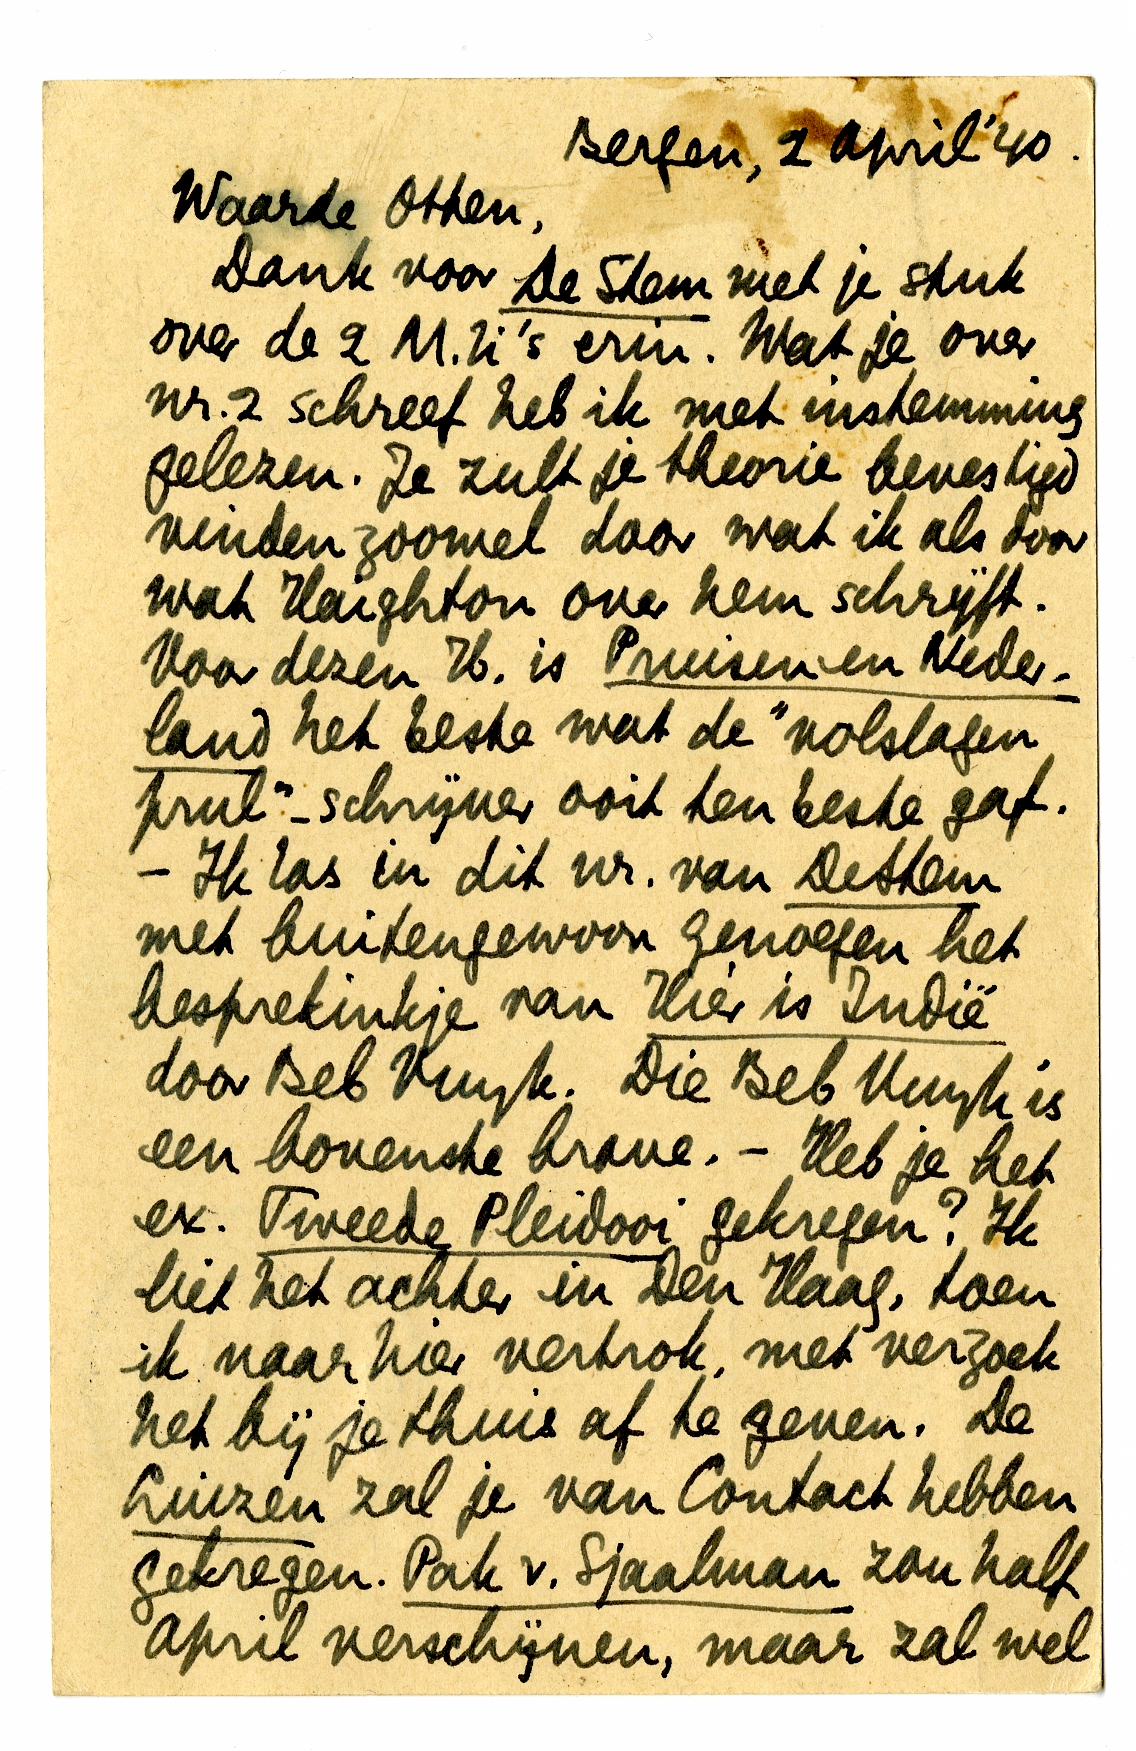 Bergen, 2 April '40.
Waarde Otten,
Dank voor De Stem met je stuk
over de 2 M.'i's erin. Wat je over
nr. 2 schreef heb ik met instemming
gelezen. Je zult je theorie bevestigd
vinden zoowel door wat ik als door
wat Haighton over hem schrijft.
Voor dezen H. is Pruisen en Neder-
land het beste wat de "volslagen
prul"-schrijver ooit ten beste gaf.
- Ik las in dit nr. van De Stem
met buitengewoon genoegen het
besprekinkje van Hier is Indië
door Beb Vuyk. Die Beb Vuyk is
een bovenste brave. - Heb je het
ex. Tweede Pleidooi gekregen? Ik
liet het achter in Den Haag, toen
ik naar hier vertrok, met verzoek
het bij je thuis af te geven. De
Luizen zal je van Contact hebben
gekregen. Pak v. Sjaalman zou half
April verschijnen, maar zal wel